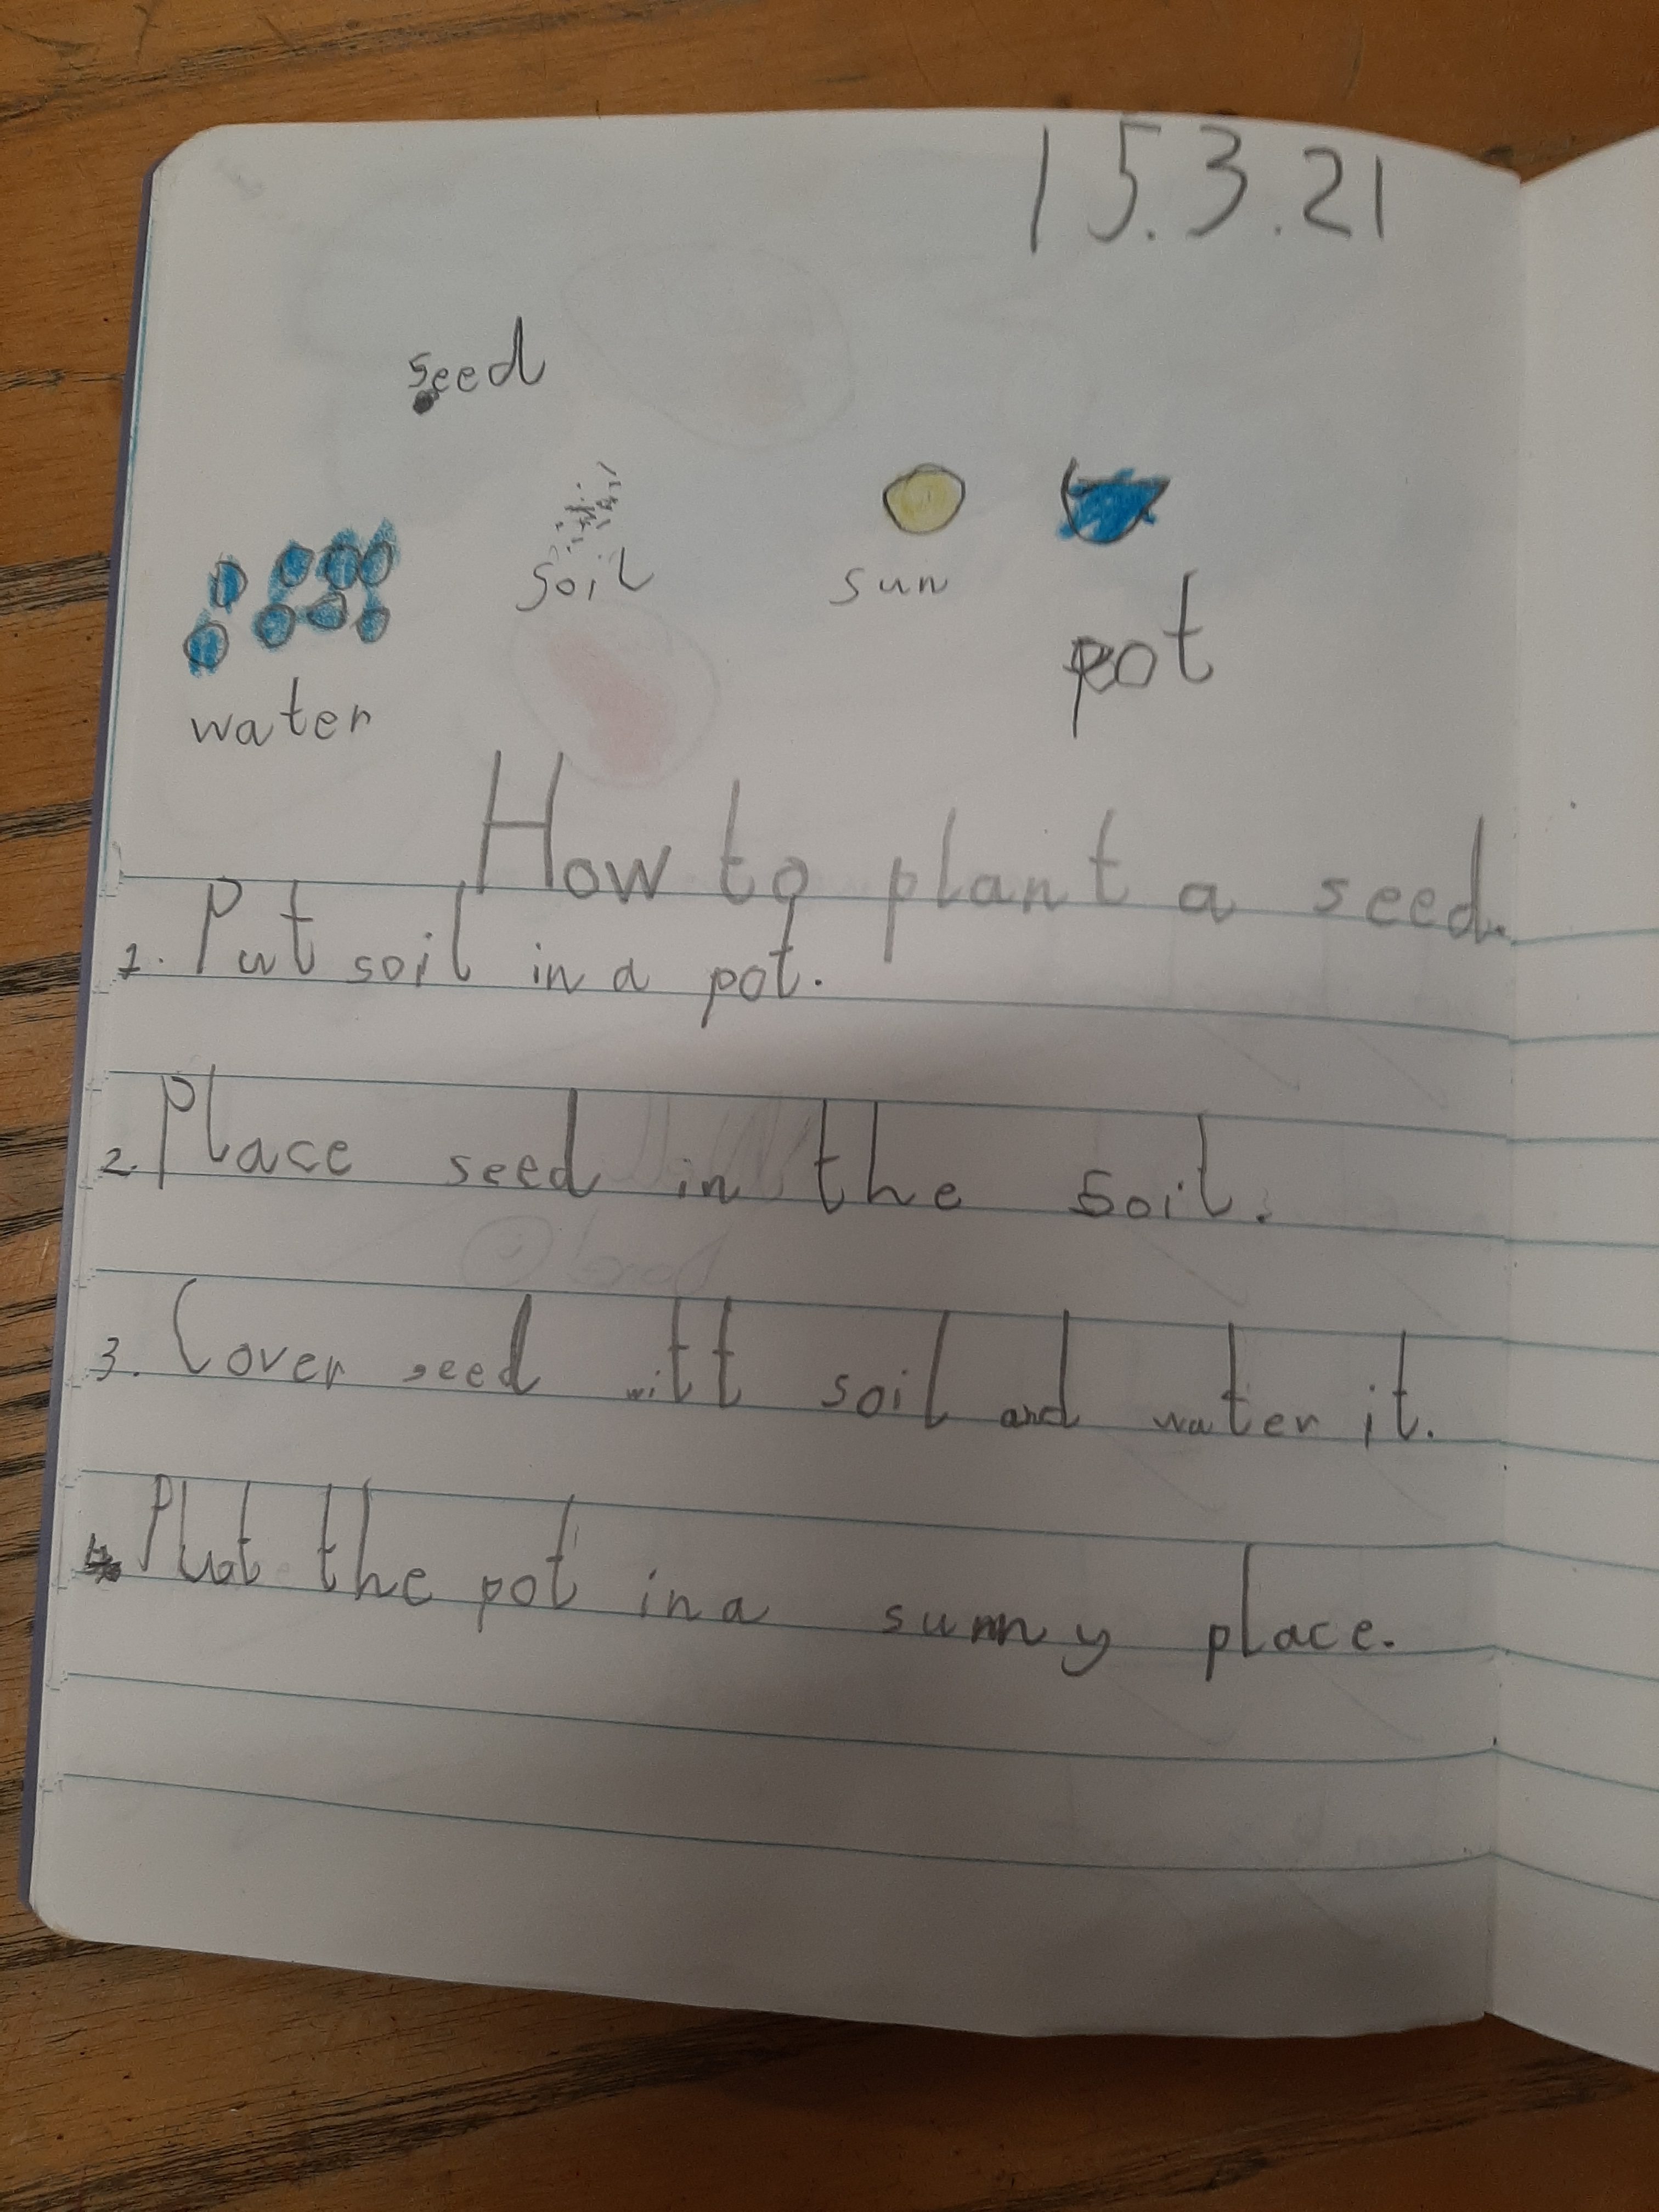 15.3.21
seed
soil
sun
pot
water
How to plant a seed.
1. Put soil in a pot.
2. Place seed in the soil.
3. Cover seed witt soil and water it.
4. Put the pot in a sunny place.